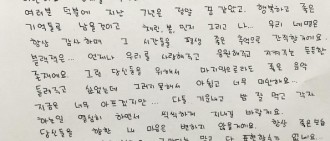 여러분 덕분에 지난 7년은 정말 꿈 같았고, 행복하고 좋은
기억들로 남을것이고 채린, 봄, 민지 그리고 나... 우리 네명은
항상 감사하며 그 시간들을 평생 좋은 추억으로 간직할거예요.
블랙잭은... 언제나 우리를 사랑해주고 응원해주고 지켜주는 든든한
존재예요. 그런 당신들을 위해서 마지막으로라도 좋은 음악
들려주고 싶었는데 그러지 못해서 아쉽고 너무 미안해요...
지금은 너무 아프겠지만... 다들 기운내고 밥 잘 먹고 각자
열심히 하면서 씩씩하게 지내길 바랄게요.
당신들을 향한 내 마음은 변하지 않을거예요. 항상 좋은